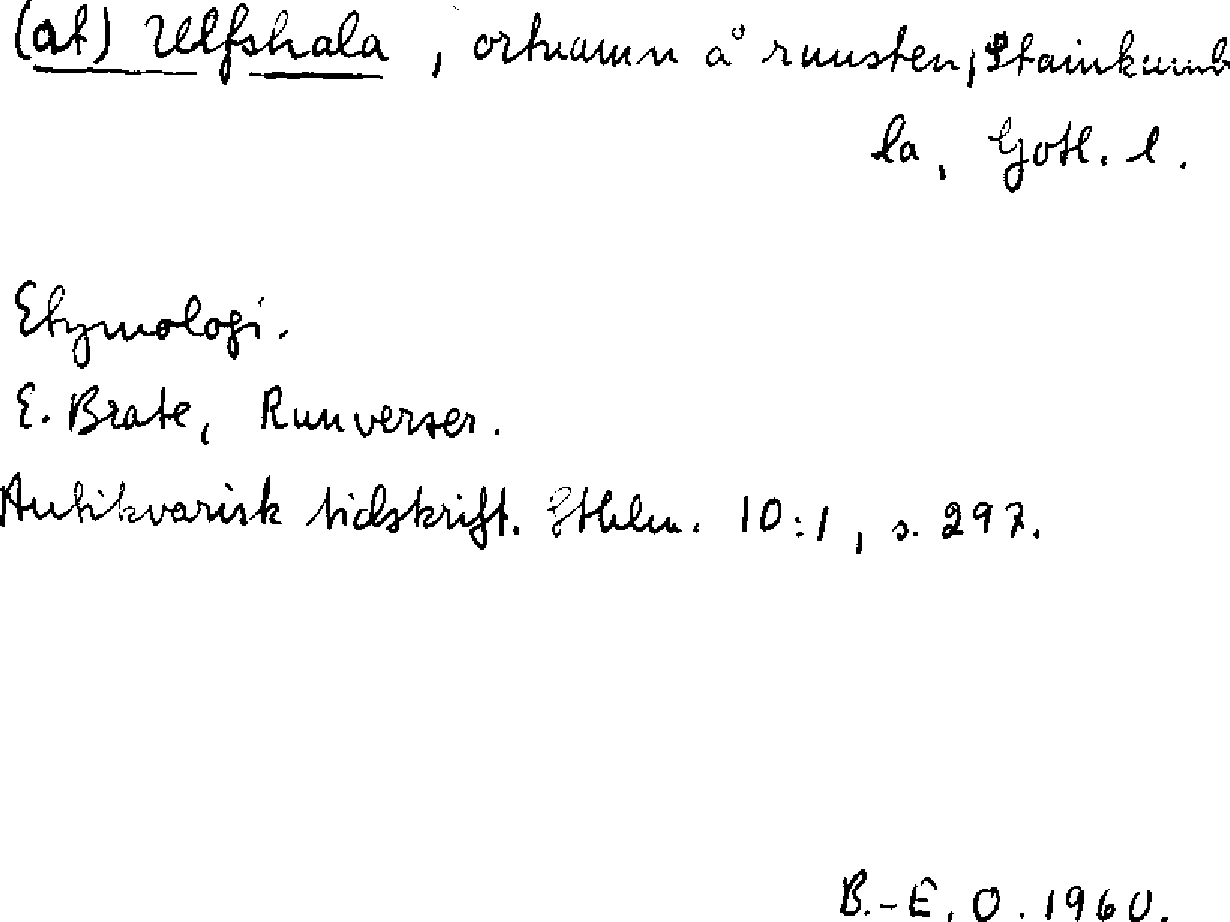 (at) Ulfshala, ortnamn å runsten, Stainkumb
la, Gotl. l.
Etymologi.
E. Brate, Runverser.
Antikvarisk tidskrift. Sthlm. 10:1, s. 297.
B.-E. O. 1960.